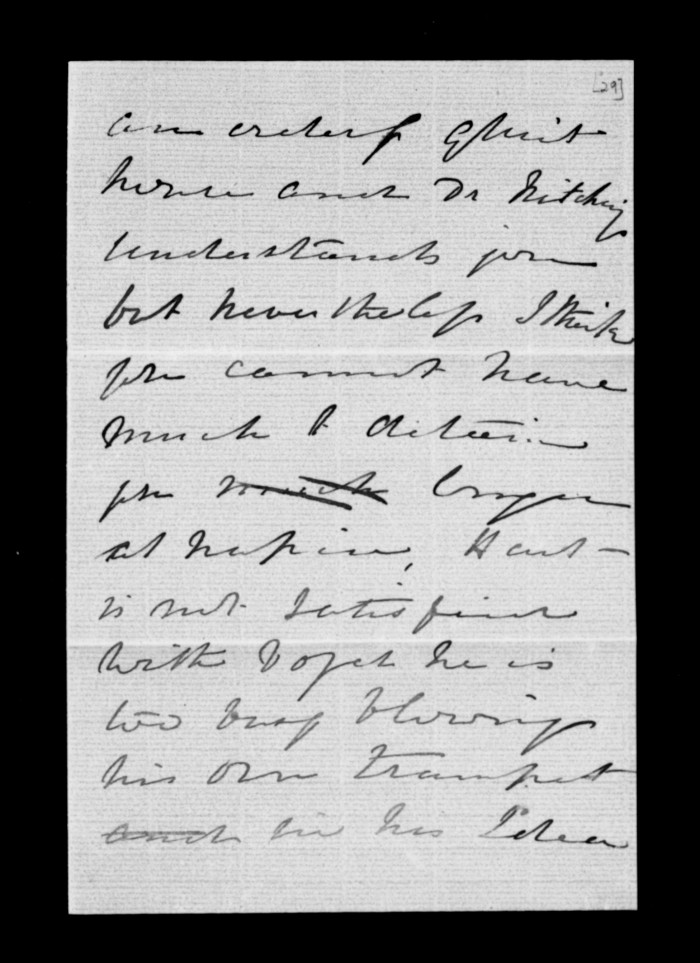 [29]
an orderly quiet
house and Dr Hitchings
understands you
but nevertheless I think
you cannot have
much to detain
you much longer
at Napier, Hart
is not satisfied
with Vogel he is
too busy blowing
his own trumpet
and in his Idea